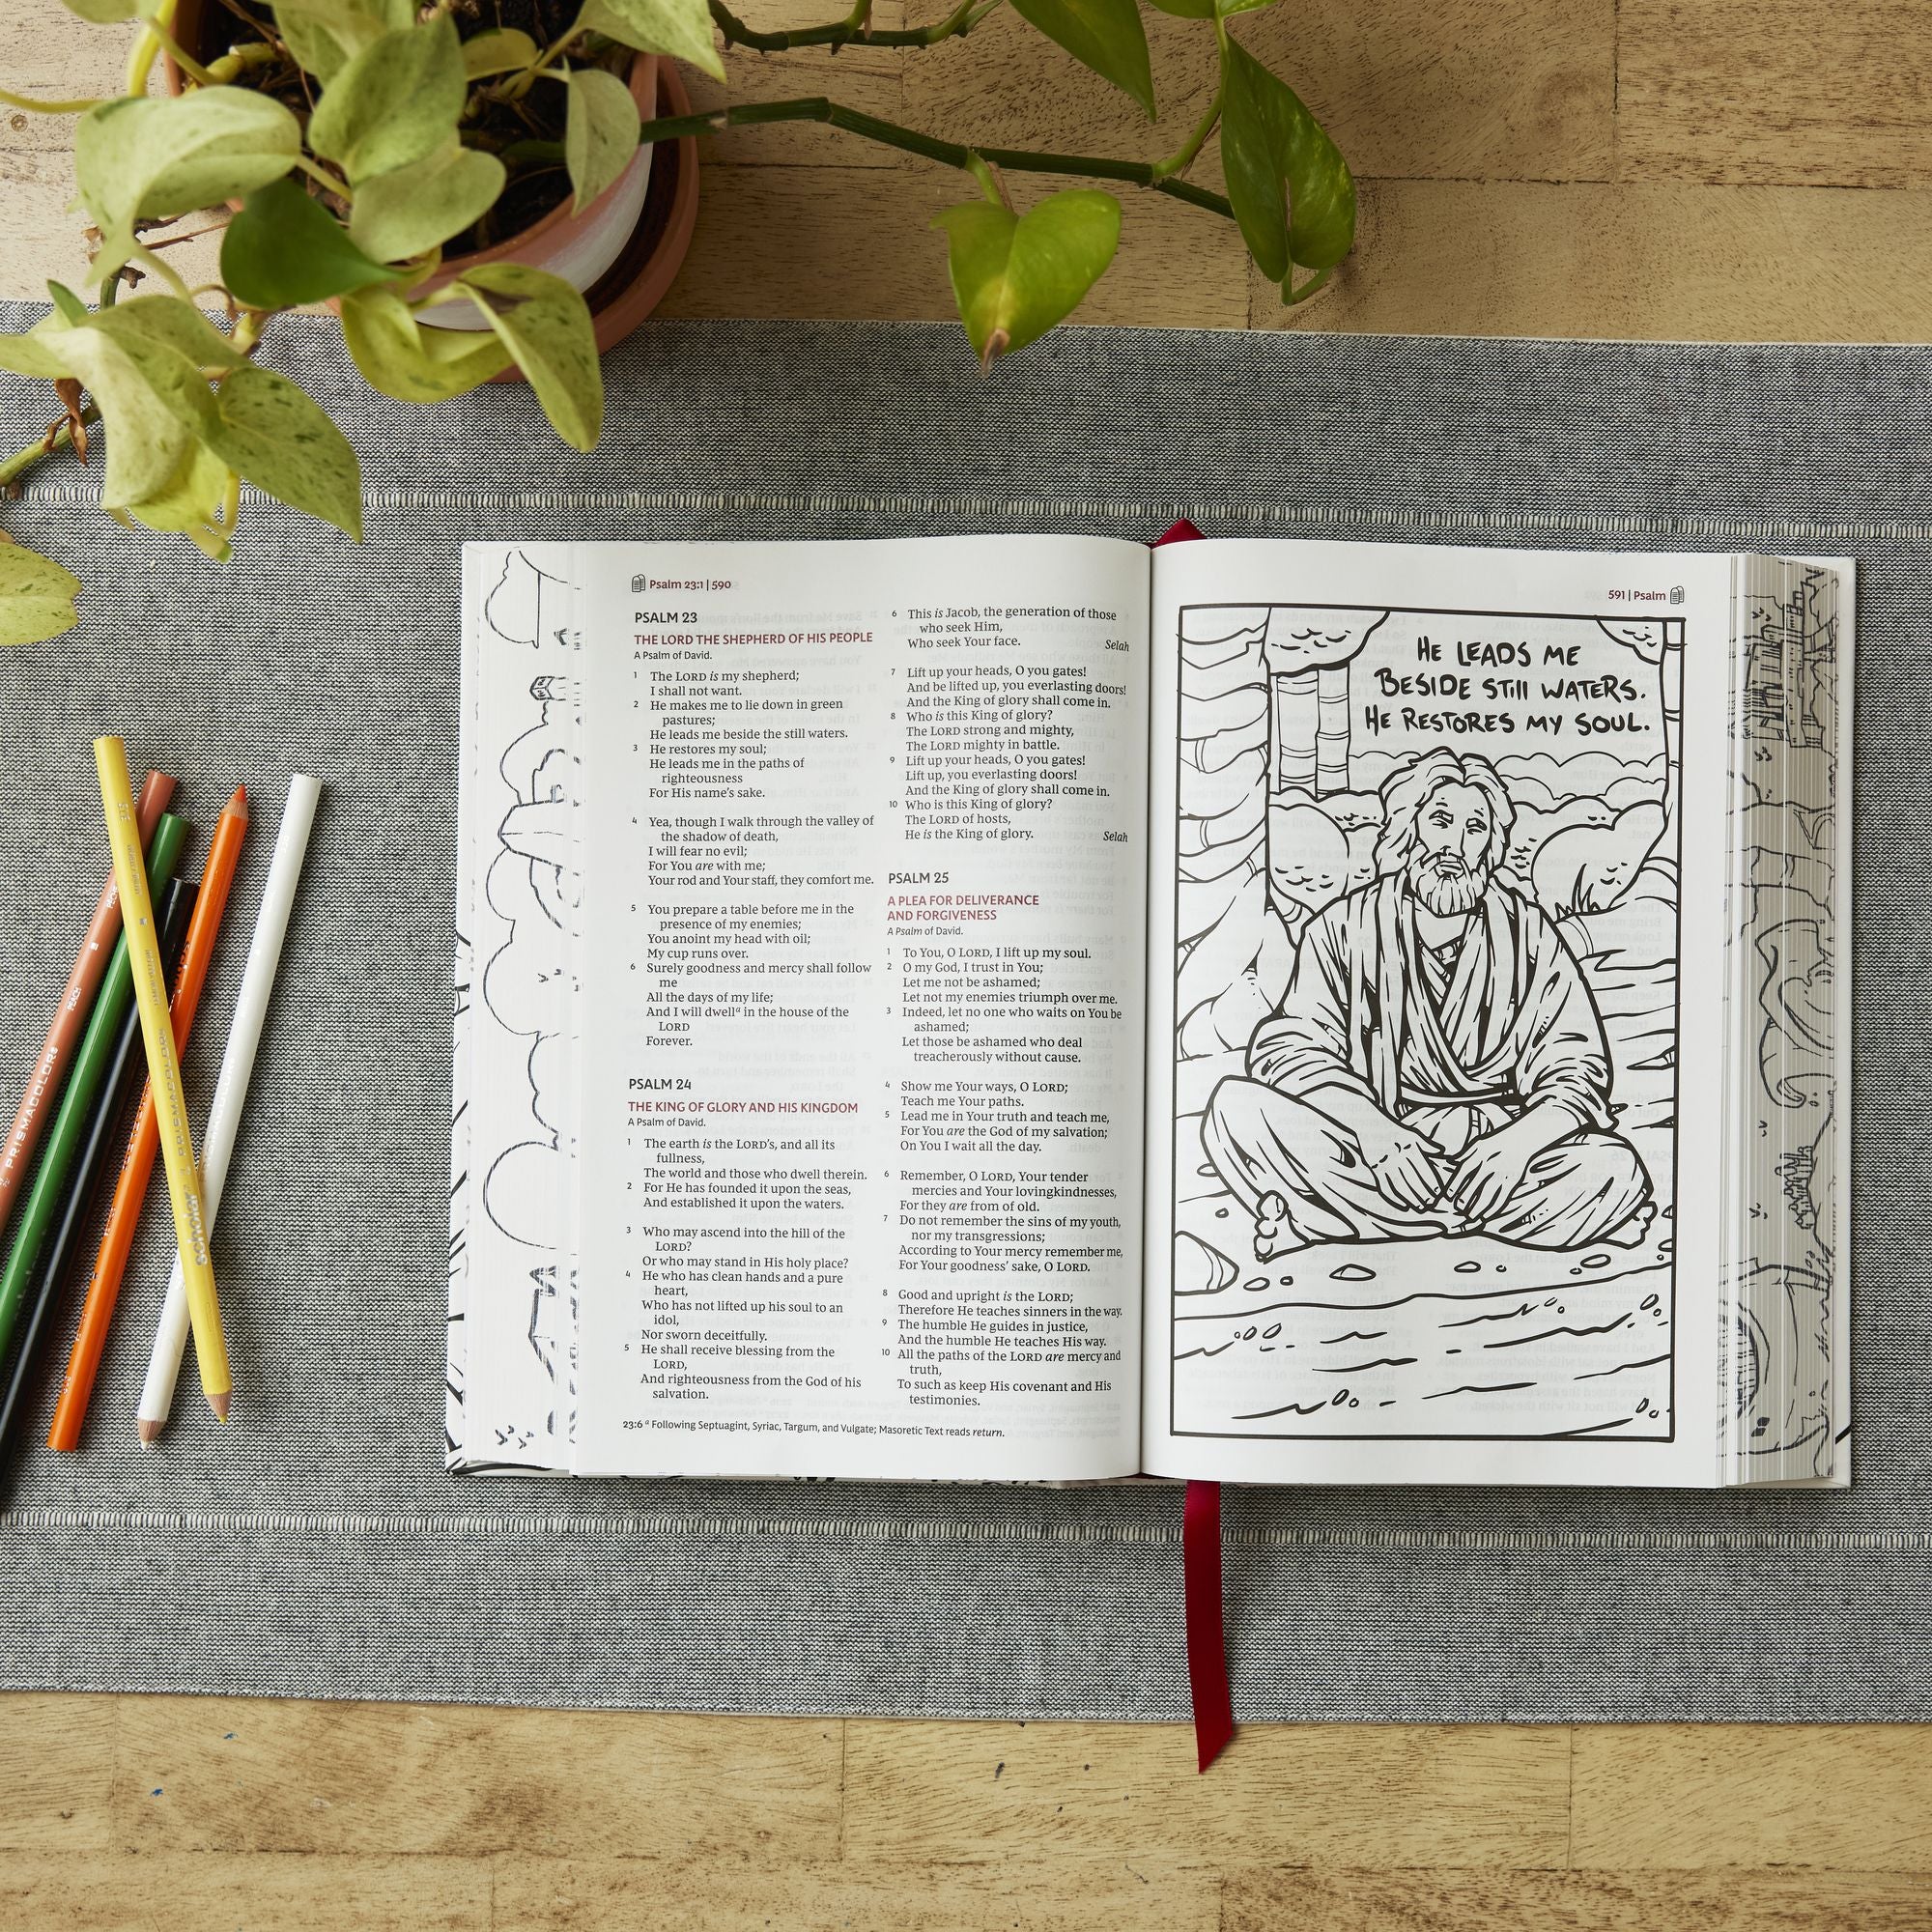 Psalm 23:1 | 590
PSALM 23
THE LORD THE SHEPHERD OF HIS PEOPLE
A Psalm of David.
1 The LORD is my shepherd;
I shall not want.
2 He makes me to lie down in green
pastures;
He leads me beside the still waters.
3 He restores my soul;
He leads me in the paths of
righteousness
For His name's sake.
4 Yea, though I walk through the valley of
the shadow of death,
I will fear no evil;
For You are with me;
Your rod and Your staff, they comfort me.
5 You prepare a table before me in the
presence of my enemies;
You anoint my head with oil;
My cup runs over.
6 Surely goodness and mercy shall follow
me
All the days of my life;
And I will dwellᵃ in the house of the
LORD
Forever.
PSALM 24
THE KING OF GLORY AND HIS KINGDOM
A Psalm of David.
1 The earth is the LORD's, and all its
fullness,
The world and those who dwell therein.
2 For He has founded it upon the seas,
And established it upon the waters.
3 Who may ascend into the hill of the
LORD?
Or who may stand in His holy place?
4 He who has clean hands and a pure
heart,
Who has not lifted up his soul to an
idol,
Nor sworn deceitfully.
5 He shall receive blessing from the
LORD,
And righteousness from the God of his
salvation.
6 This is Jacob, the generation of those
who seek Him,
Who seek Your face. Selah
7 Lift up your heads, O you gates!
And be lifted up, you everlasting doors!
And the King of glory shall come in.
8 Who is this King of glory?
The LORD strong and mighty,
The LORD mighty in battle.
9 Lift up your heads, O you gates!
Lift up, you everlasting doors!
And the King of glory shall come in.
10 Who is this King of glory?
The LORD of hosts,
He is the King of glory. Selah
PSALM 25
A PLEA FOR DELIVERANCE
AND FORGIVENESS
A Psalm of David.
1 To You, O LORD, I lift up my soul.
2 O my God, I trust in You;
Let me not be ashamed;
Let not my enemies triumph over me.
3 Indeed, let no one who waits on You be
ashamed;
Let those be ashamed who deal
treacherously without cause.
4 Show me Your ways, O LORD;
Teach me Your paths.
5 Lead me in Your truth and teach me,
For You are the God of my salvation;
On You I wait all the day.
6 Remember, O LORD, Your tender
mercies and Your lovingkindnesses,
For they are from of old.
7 Do not remember the sins of my youth,
nor my transgressions;
According to Your mercy remember me,
For Your goodness' sake, O LORD.
8 Good and upright is the LORD;
Therefore He teaches sinners in the way.
9 The humble He guides in justice,
And the humble He teaches His way.
10 All the paths of the LORD are mercy and
truth,
To such as keep His covenant and His
testimonies.
23:6 ᵃ Following Septuagint, Syriac, Targum, and Vulgate; Masoretic Text reads return.
591 | Psalm
HE LEADS ME
BESIDE STill WATERS.
HE RESTORES MY SOUL.
PRISMACOLOR
PEACH
scholar
PRISMACOLOR